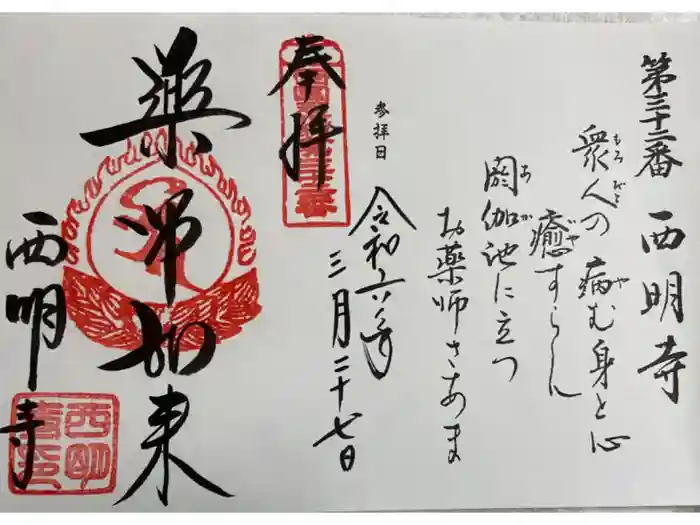 第三十二番 西明寺
衆人の病む身と心
もろびと
や
癒すらん
いや
閼伽池に立つ
あか
お薬師さあま
参拝日
令和六年
三月二十七日
奉拝
薬師如来
西明寺